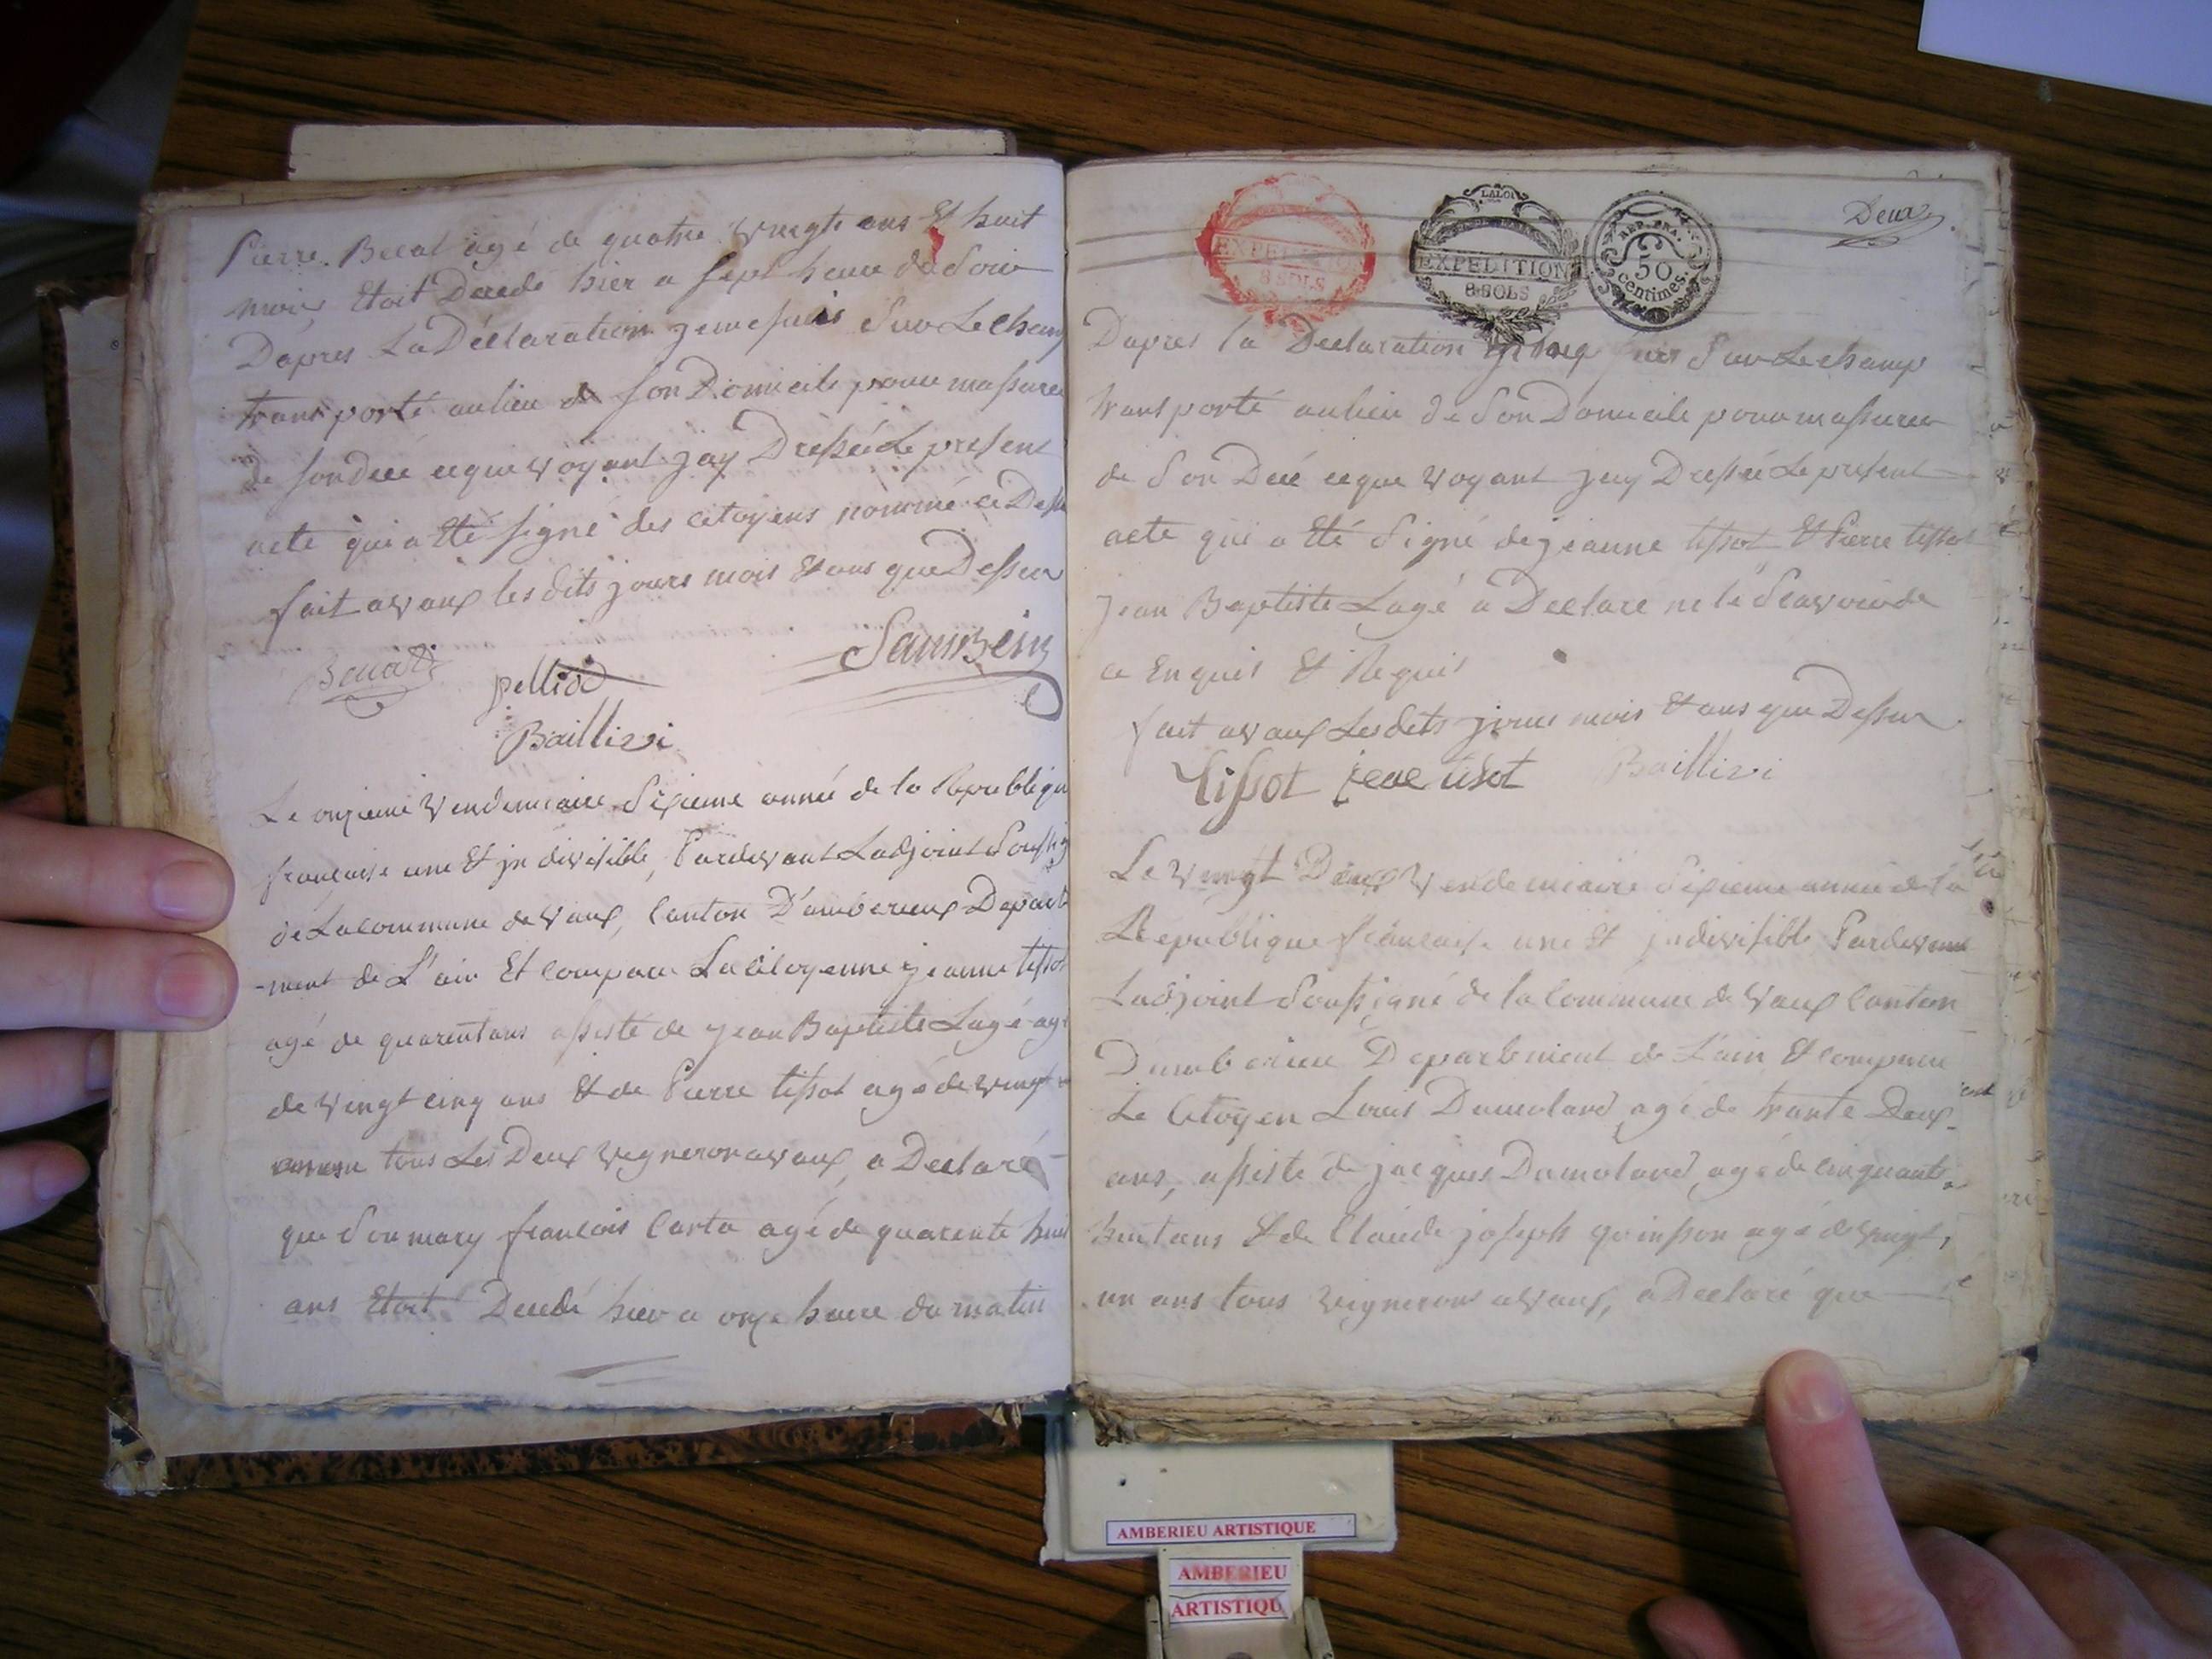 Pierre Becat agé de quatre vingts ans Et huit
mois Etoit Decede hier a sept heure du Soir
Dapres La Déclaration je me suis Sur Le Champ
transporté au lieu de son Domicile pour massurer
de son decé ce que voyant jay Dressé Le present
acte qui a Eté signé des citoyens nommé ci Dessu
fait a vaux les dits jours mois Et ans que Dessus
pellion
Baillivi
Le onzieme Vendemiaire Sixieme année de la Republique
francaise une Et jndivisible, Pardevant Ladjoint Soussig
de La commune de vaux, Canton D'amberieux Departe
-ment de L'ain Et comparu La Citoyenne jeanne tissot
agé de quarent ans assisté de jean Baptiste Lagé agé
de vingt cinq ans Et de Pierre tissot agé de vingt
tous Les Deux vigneron a vaux, a Declaré
que Son mary francois Carta agé de quarente huit
ans Etoit Decedé hier a onze heure du matin
Deux
LA LOI
EXPEDITION
8 SOLS
EXPEDITION
8 SOLS
REP. FRA.
50
Centimes.
Dapres la Declaration suis Sur Le champ
transporté au lieu de Son Domicile pour massurer
de Son Decé ce que voyant jay Dressé Le present
acte qui a Eté Signé de jeanne tissot Et Pierre tissot
jean Baptiste Lagé a Declare ne le Scavoir de
ce Enquis Et Requis
fait a vaux Les dits jours mois Et ans que Dessus
tissot jeane tisot Baillivi
Le vingt Deux Vendemiaire Sixieme année de la
Republique francaise une Et jndivisible Pardevant
Ladjoint Soussigné de la Commune de vaux Canton
Damberieu Departement de L'ain Et comparu
Le Citoyen Louis Dumolard agé de trante Deux
ans, assisté de jacques Dumolard agé de cinquante
huit ans Et de Claude joseph quinsson agé de vingt,
un ans tous vignerons a vaux, a Declaré que
AMBERIEU ARTISTIQUE
AMBERIEU
ARTISTIQU